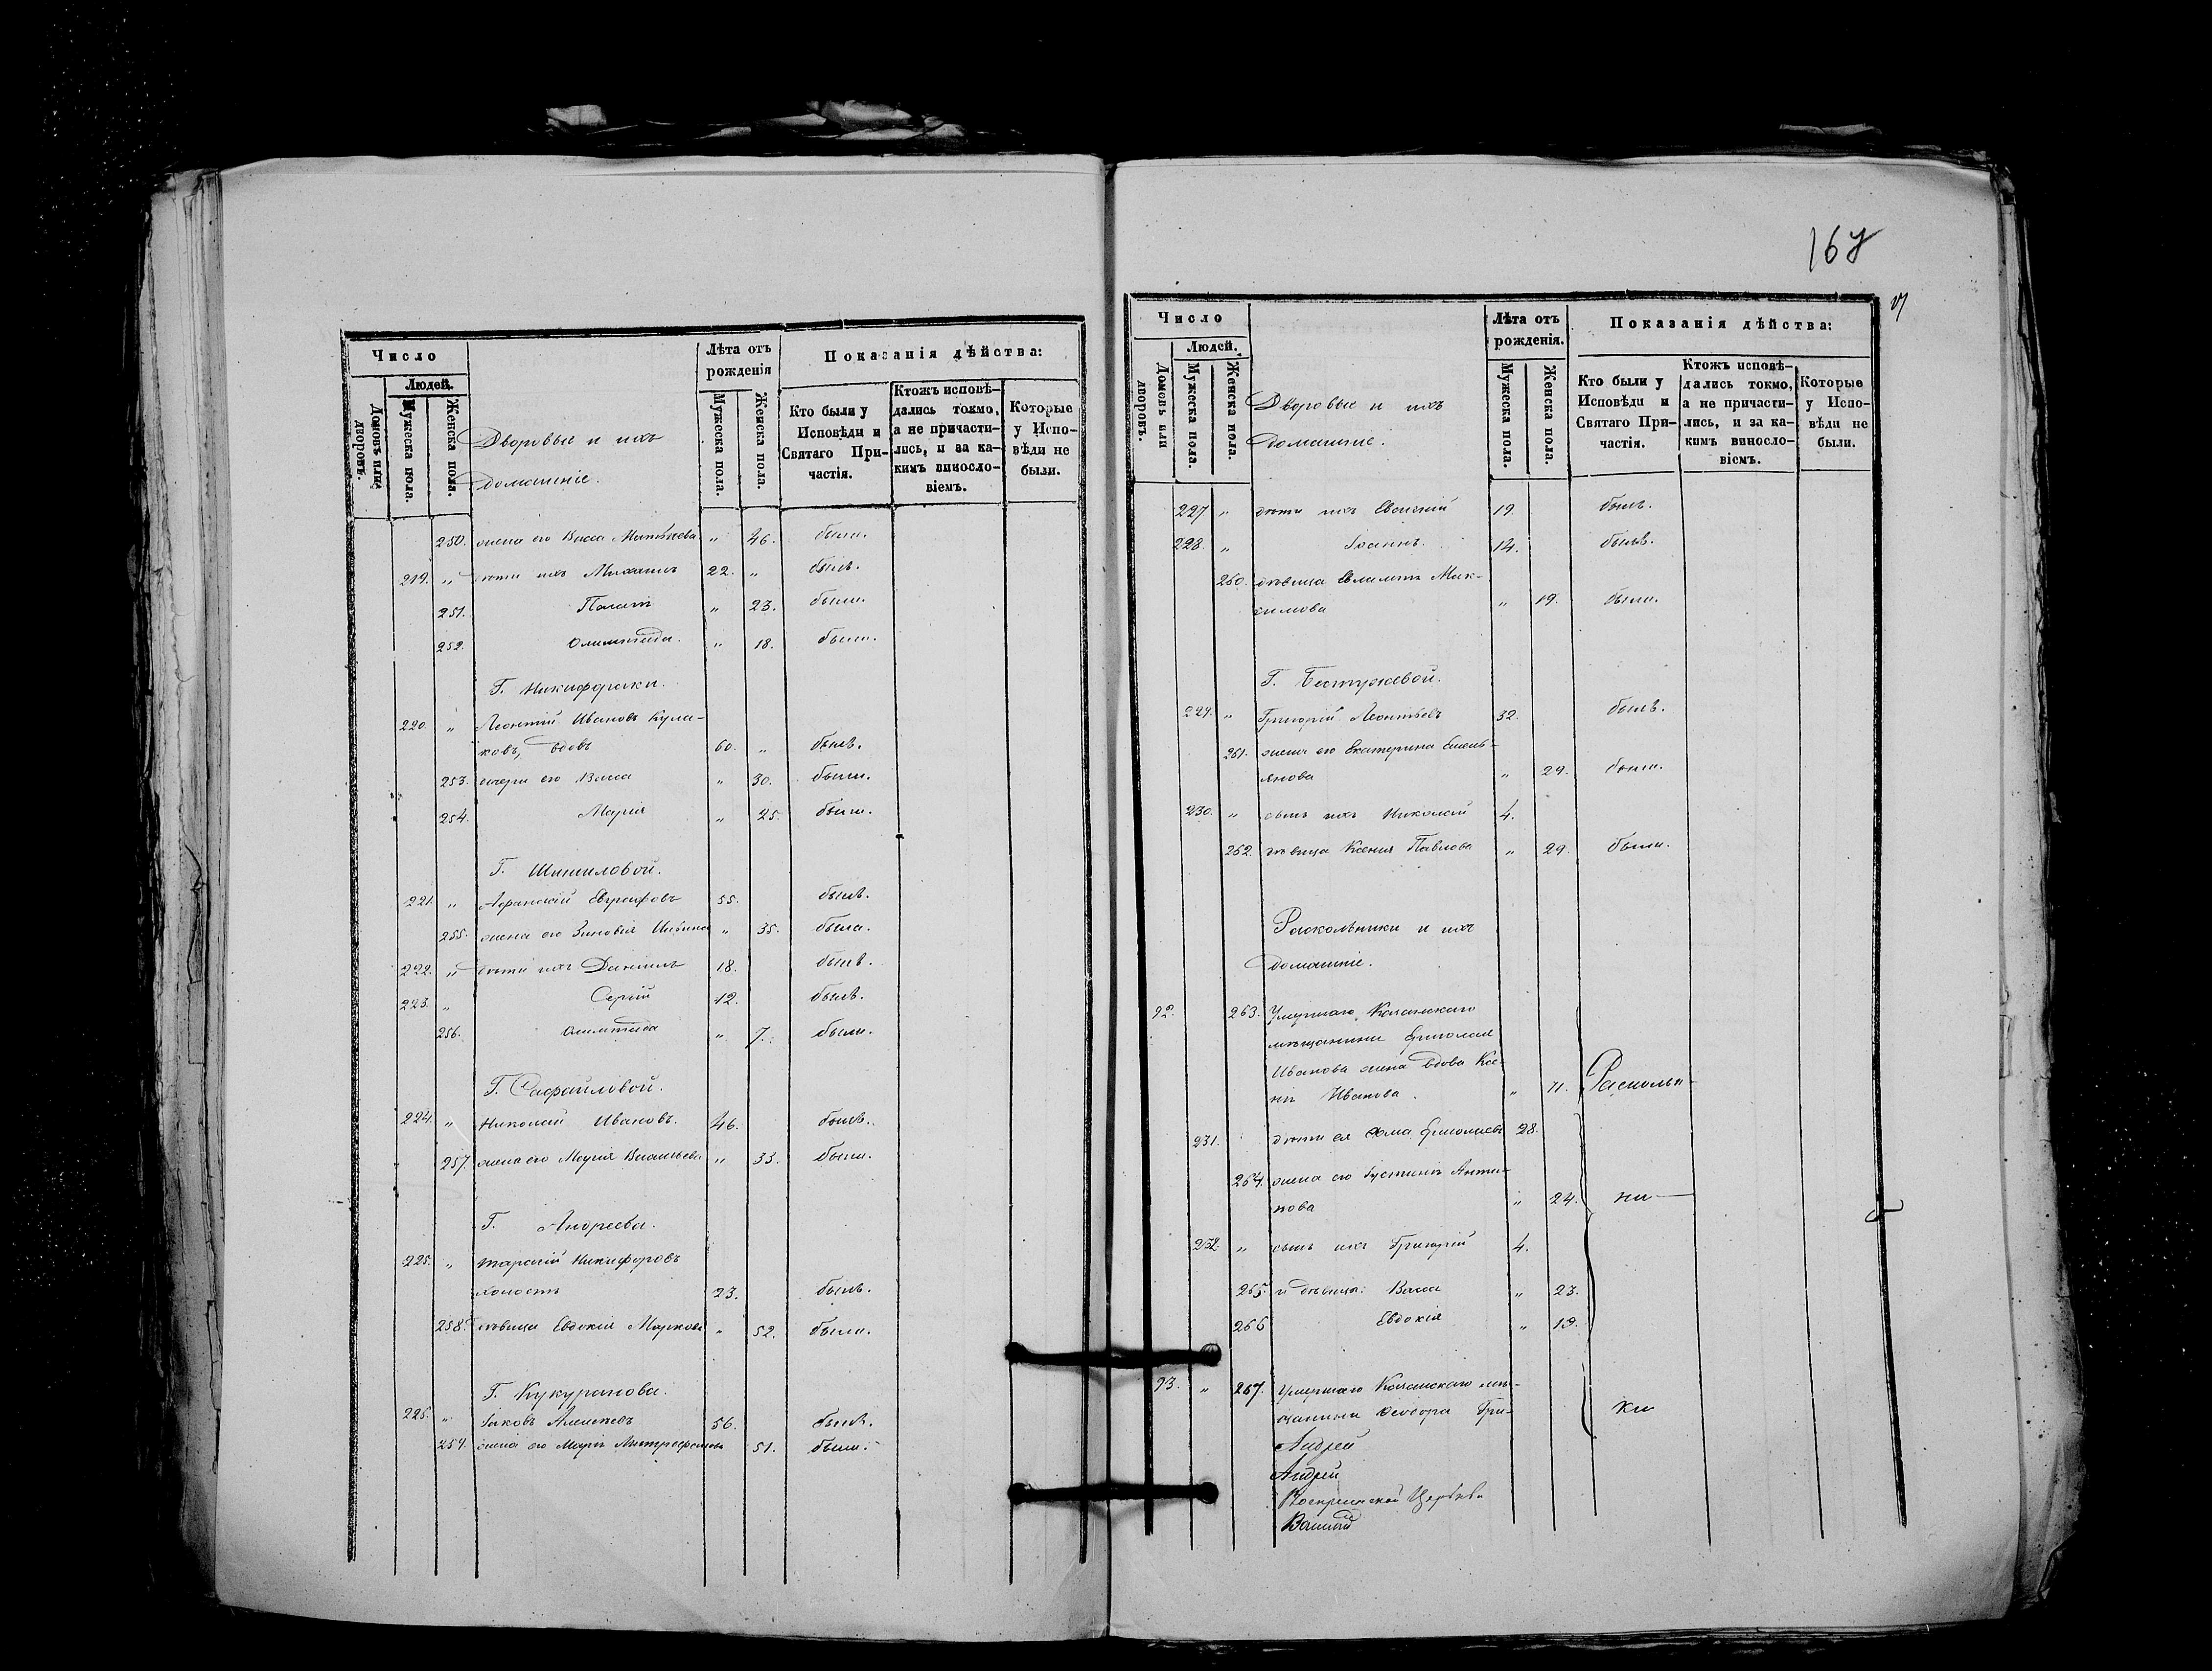 Число
Людей.
Домовъ или дворовъ.
Мужеска пола.
Женска пола.
Дворовые и ихъ
домашніе.
Лѣта отъ
рожденія
Мужеска пола.
Женска пола.
Показанія дѣйства:
Кто были у
Исповѣди и
Святаго При-
частія.
Ктожъ исповѣ-
дались токмо,
а не причасти-
лись, и за ка-
кимъ виносло-
віемъ.
Которые
у Испо-
вѣди не
были.
250. жена его Васса Матвѣева " 46. была.
219. " дѣти ихъ Михаилъ 22. " былъ.
251. " 23. была.
252. Олимпіада. " 18. была.
Г. Никифораки.
220. " Леонтій Ивановъ Кула-
ковъ, вдовъ 60. " былъ.
253. дщери его Васса " 30. была.
254. Марія " 25. была.
Г. Шишловой.
221. " Афанасій Евграфовъ 55. былъ.
255. жена его Зиновія " 35. была.
222. " дѣти ихъ Даніилъ 18. былъ.
223. " Сергій 12. былъ.
256. Олимпіада " 7. была.
Г. Сафайловой.
224. " Николай Ивановъ. 46. былъ.
257. жена его Марія Васильева " 33. была.
Г. Андреева.
225. " Тарасій Никифоровъ
холостъ 23. былъ.
258. дѣвица Евдокія Маркова " 52. была.
Г. Кукуранова.
226. " Іаковъ Алексѣевъ 56. былъ.
259. жена его Марія Митрофанова 51. была.
167
Число
Людей.
Домовъ или дворовъ.
Мужеска пола.
Женска пола.
Дворовые и ихъ
домашніе.
Лѣта отъ
рожденія.
Мужеска пола.
Женска пола.
Показанія дѣйства:
Кто были у
Исповѣди и
Святаго При-
частія.
Ктожъ исповѣ-
дались токмо,
а не причасти-
лись, и за ка-
кимъ виносло-
віемъ.
Которые
у Испо-
вѣди не
были.
227 " дѣти ихъ Евгеній 19. былъ.
228. " Іоаннъ. 14. былъ.
260. дѣвица Мак-
симова " 19. была.
Г. Бестужевой.
229. " Григорій Леонтьевъ 32. былъ.
261. жена его Екатерина Емель-
янова " 29. была.
230. " сынъ ихъ Николай 4.
262. дѣвица Ксенія Павлова " 29. была.
Раскольники и ихъ
домашніе.
92. 263. Умершаго Казанскаго
мѣщанина Ермолая
Иванова жена вдова Ксе-
нія Иванова. " 71. Расколь-
231. дѣти ея Ѳома Ермолаевъ 28.
264. жена его Іустинія Анти-
пова " 24. ни-
232. " сынъ ихъ Григорій 4.
265. и дѣвица: Васса " 23.
266 Евдокія " 19.
93. " 267. Умершаго Казанскаго мѣ-
щанина Ѳеодора Гри- ки
Андрей
Андрей
Воскресенской Церкви